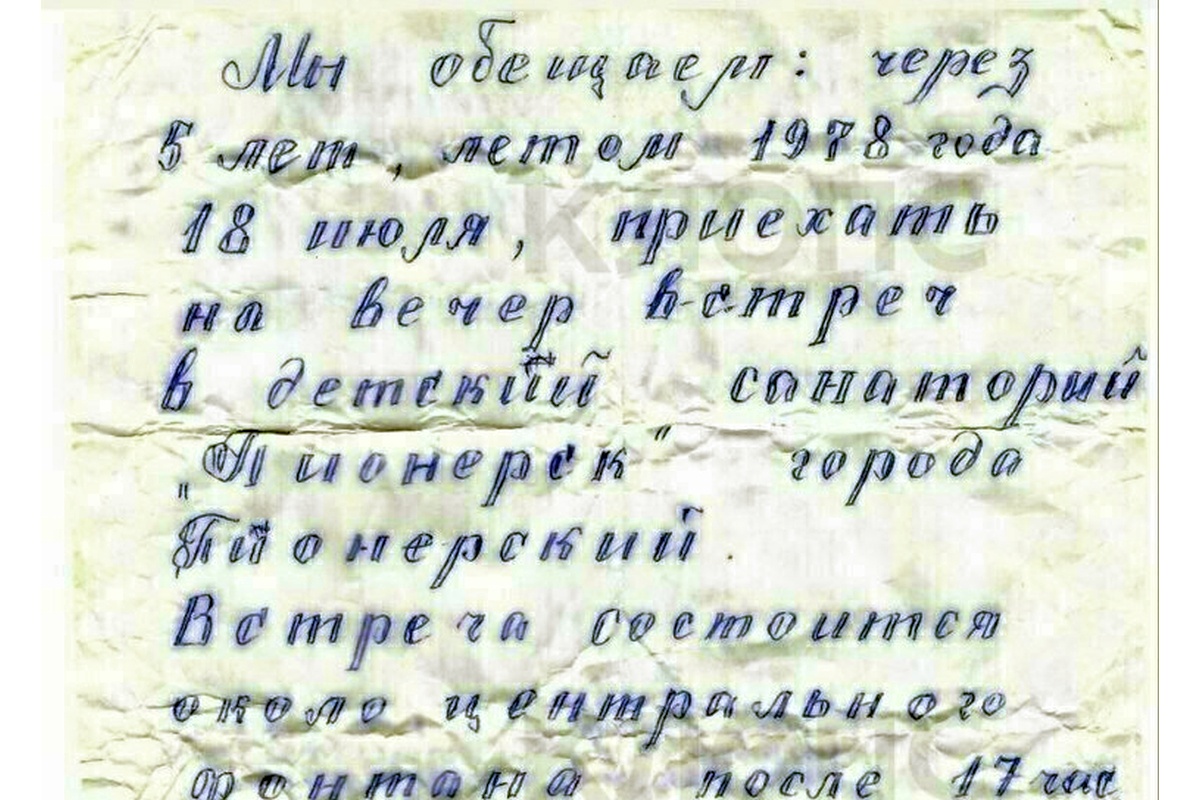 Мы обещаем: через
5 лет, летом 1978 года
18 июля, приехать
на вечер встреч
в детский санаторий
„Пионерск" города
Пионерский.
Встреча состоится
около центрального
фонтана после 17 час
клопс
клопс